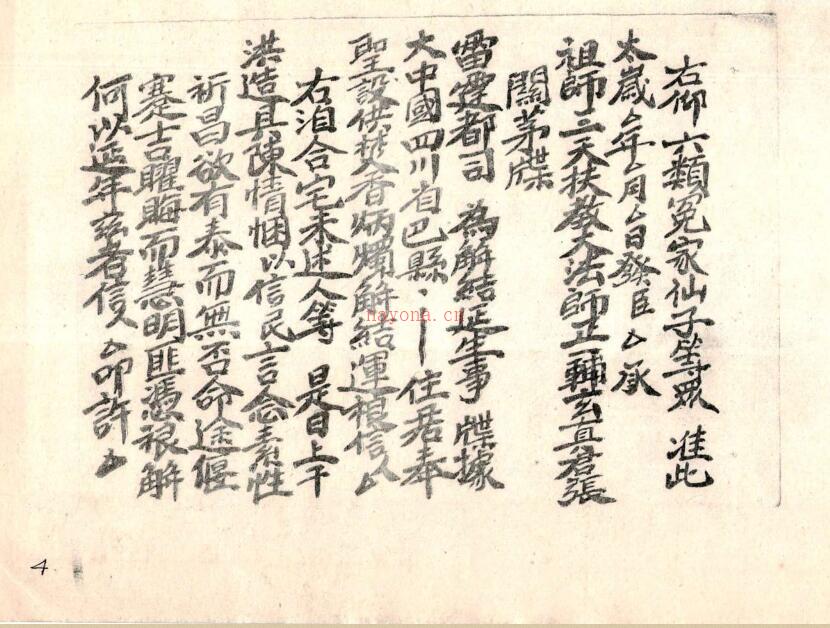 右仰六類冤家仙子等眾 准此
太歲厶年厶月厶日發臣厶承
祖師三天扶教大法師正一輔玄真君張
關茅牒
雷霆都司 為解結延生事 牒據
大中國四川省巴縣、丨住居奉
聖設供焚香炳燭解結運根信人厶
右洎合宅未述人等 是日上干
洪造具陳情悃以信民言念素性
祈昌欲有泰而無否命途偃
蹇吉曜晦而慧明匪憑禳解
何以延年茲者信人厶叩許厶
hayona.cn
4